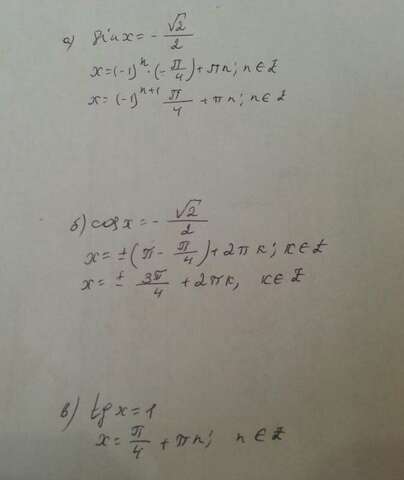 а) sin x = - √2/2
x = (-1)^n · (- π/4) + πn; n ∈ Z
x = (-1)^(n+1) π/4 + πn; n ∈ Z
б) cos x = - √2/2
x = ± (π - π/4) + 2πk; k ∈ Z
x = ± 3π/4 + 2πk, k ∈ Z
в) tg x = 1
x = π/4 + πn; n ∈ Z